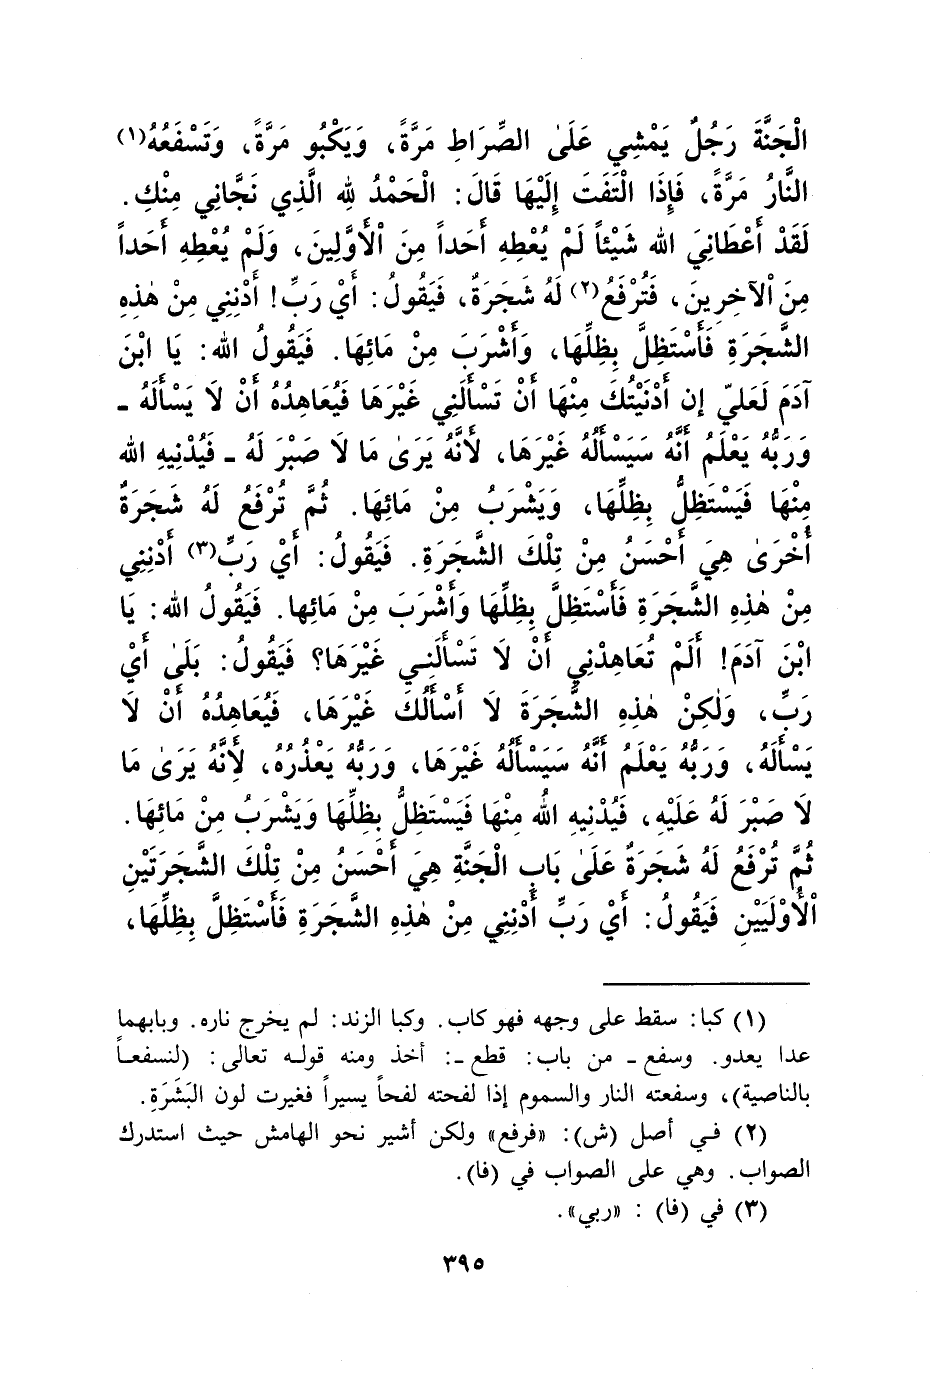 الْجَنَّةَ رَجُلٌ يَمْشِي عَلَىٰ الصِّرَاطِ مَرَّةً، وَيَكْبُو مَرَّةً، وَتَسْفَعُهُ(١)
النَّارُ مَرَّةً، فَإِذَا الْتَفَتَ إِلَيْهَا قَالَ: الْحَمْدُ لِلهِ الَّذِي نَجَّانِي مِنْكِ.
لَقَدْ أَعْطَانِيَ اللهُ شَيْئاً لَمْ يُعْطِهِ أَحَداً مِنَ الْأَوَّلِينَ، وَلَمْ يُعْطِهِ أَحَداً
مِنَ الْآخِرِينَ، فَتُرْفَعُ(٢) لَهُ شَجَرَةٌ، فَيَقُولُ: أَيْ رَبِّ! أَدْنِنِي مِنْ هٰذِهِ
الشَّجَرَةِ فَأَسْتَظِلَّ بِظِلِّهَا، وَأَشْرَبَ مِنْ مَائِهَا. فَيَقُولُ اللهُ: يَا ابْنَ
آدَمَ لَعَلِّيّ إن أَدْنَيْتُكَ مِنْهَا أَنْ تَسْأَلَنِي غَيْرَهَا فَيُعَاهِدُهُ أَنْ لَا يَسْأَلَهُ ـ
وَرَبُّهُ يَعْلَمُ أَنَّهُ سَيَسْأَلُهُ غَيْرَهَا، لأَنَّهُ يَرَىٰ مَا لَا صَبْرَ لَهُ ـ فَيُدْنِيهِ الله
مِنْهَا فَيَسْتَظِلُّ بِظِلِّهَا، وَيَشْرَبُ مِنْ مَائِهَا. ثُمَّ تُرْفَعُ لَهُ شَجَرَةٌ
أُخْرَىٰ هِيَ أَحْسَنُ مِنْ تِلْكَ الشَّجَرَةِ. فَيَقُولُ: أَيْ رَبِّ(٣) أَدْنِنِي
مِنْ هٰذِهِ الشَّجَرَةِ فَأَسْتَظِلَّ بِظِلِّهَا وَأَشْرَبَ مِنْ مَائِها. فَيَقُولُ الله: يَا
ابْنَ آدَمَ! أَلَمْ تُعَاهِدْنِي أَنْ لَا تَسْأَلَنِي غَيْرَهَا؟ فَيَقُولُ: بَلَىٰ أَيْ
رَبِّ، وَلٰكِنْ هٰذِهِ الشَّجَرَةَ لَا أَسْأَلُكَ غَيْرَهَا، فَيُعَاهِدُهُ أَنْ لَا
يَسْأَلَهُ، وَرَبُّهُ يَعْلَمُ أَنَّهُ سَيَسْأَلُهُ غَيْرَهَا، وَرَبُّهُ يَعْذُرُهُ، لِأَنَّهُ يَرَىٰ مَا
لَا صَبْرَ لَهُ عَلَيْهِ، فَيُدْنِيهِ اللهُ مِنْهَا فَيَسْتَظِلُّ بِظِلِّهَا وَيَشْرَبُ مِنْ مَائِهَا.
ثُمَّ تُرْفَعُ لَهُ شَجَرَةٌ عَلَىٰ بَابِ الْجَنَّةِ هِيَ أَحْسَنُ مِنْ تِلْكَ الشَّجَرَتَيْنِ
الْأُوْلَيَيْنِ فَيَقُولُ: أَيْ رَبِّ أَدْنِنِي مِنْ هٰذِهِ الشَّجَرَةِ فَأَسْتَظِلَّ بِظِلِّهَا،
(١) كبا: سقط على وجهه فهو كاب. وكبا الزند: لم يخرج ناره. وبابهما
عدا يعدو. وسفع ـ من باب: قطع ـ: أخذ ومنه قوله تعالى: (لنسفعاً
بالناصية)، وسفعته النار والسموم إذا لفحته لفحاً يسيراً فغيرت لون البَشَرَةِ.
(٢) في أصل (ش): «فرفع» ولكن أشير نحو الهامش حيث استدرك
الصواب. وهي على الصواب في (فا).
(٣) في (فا) : «ربي».
٣٩٥